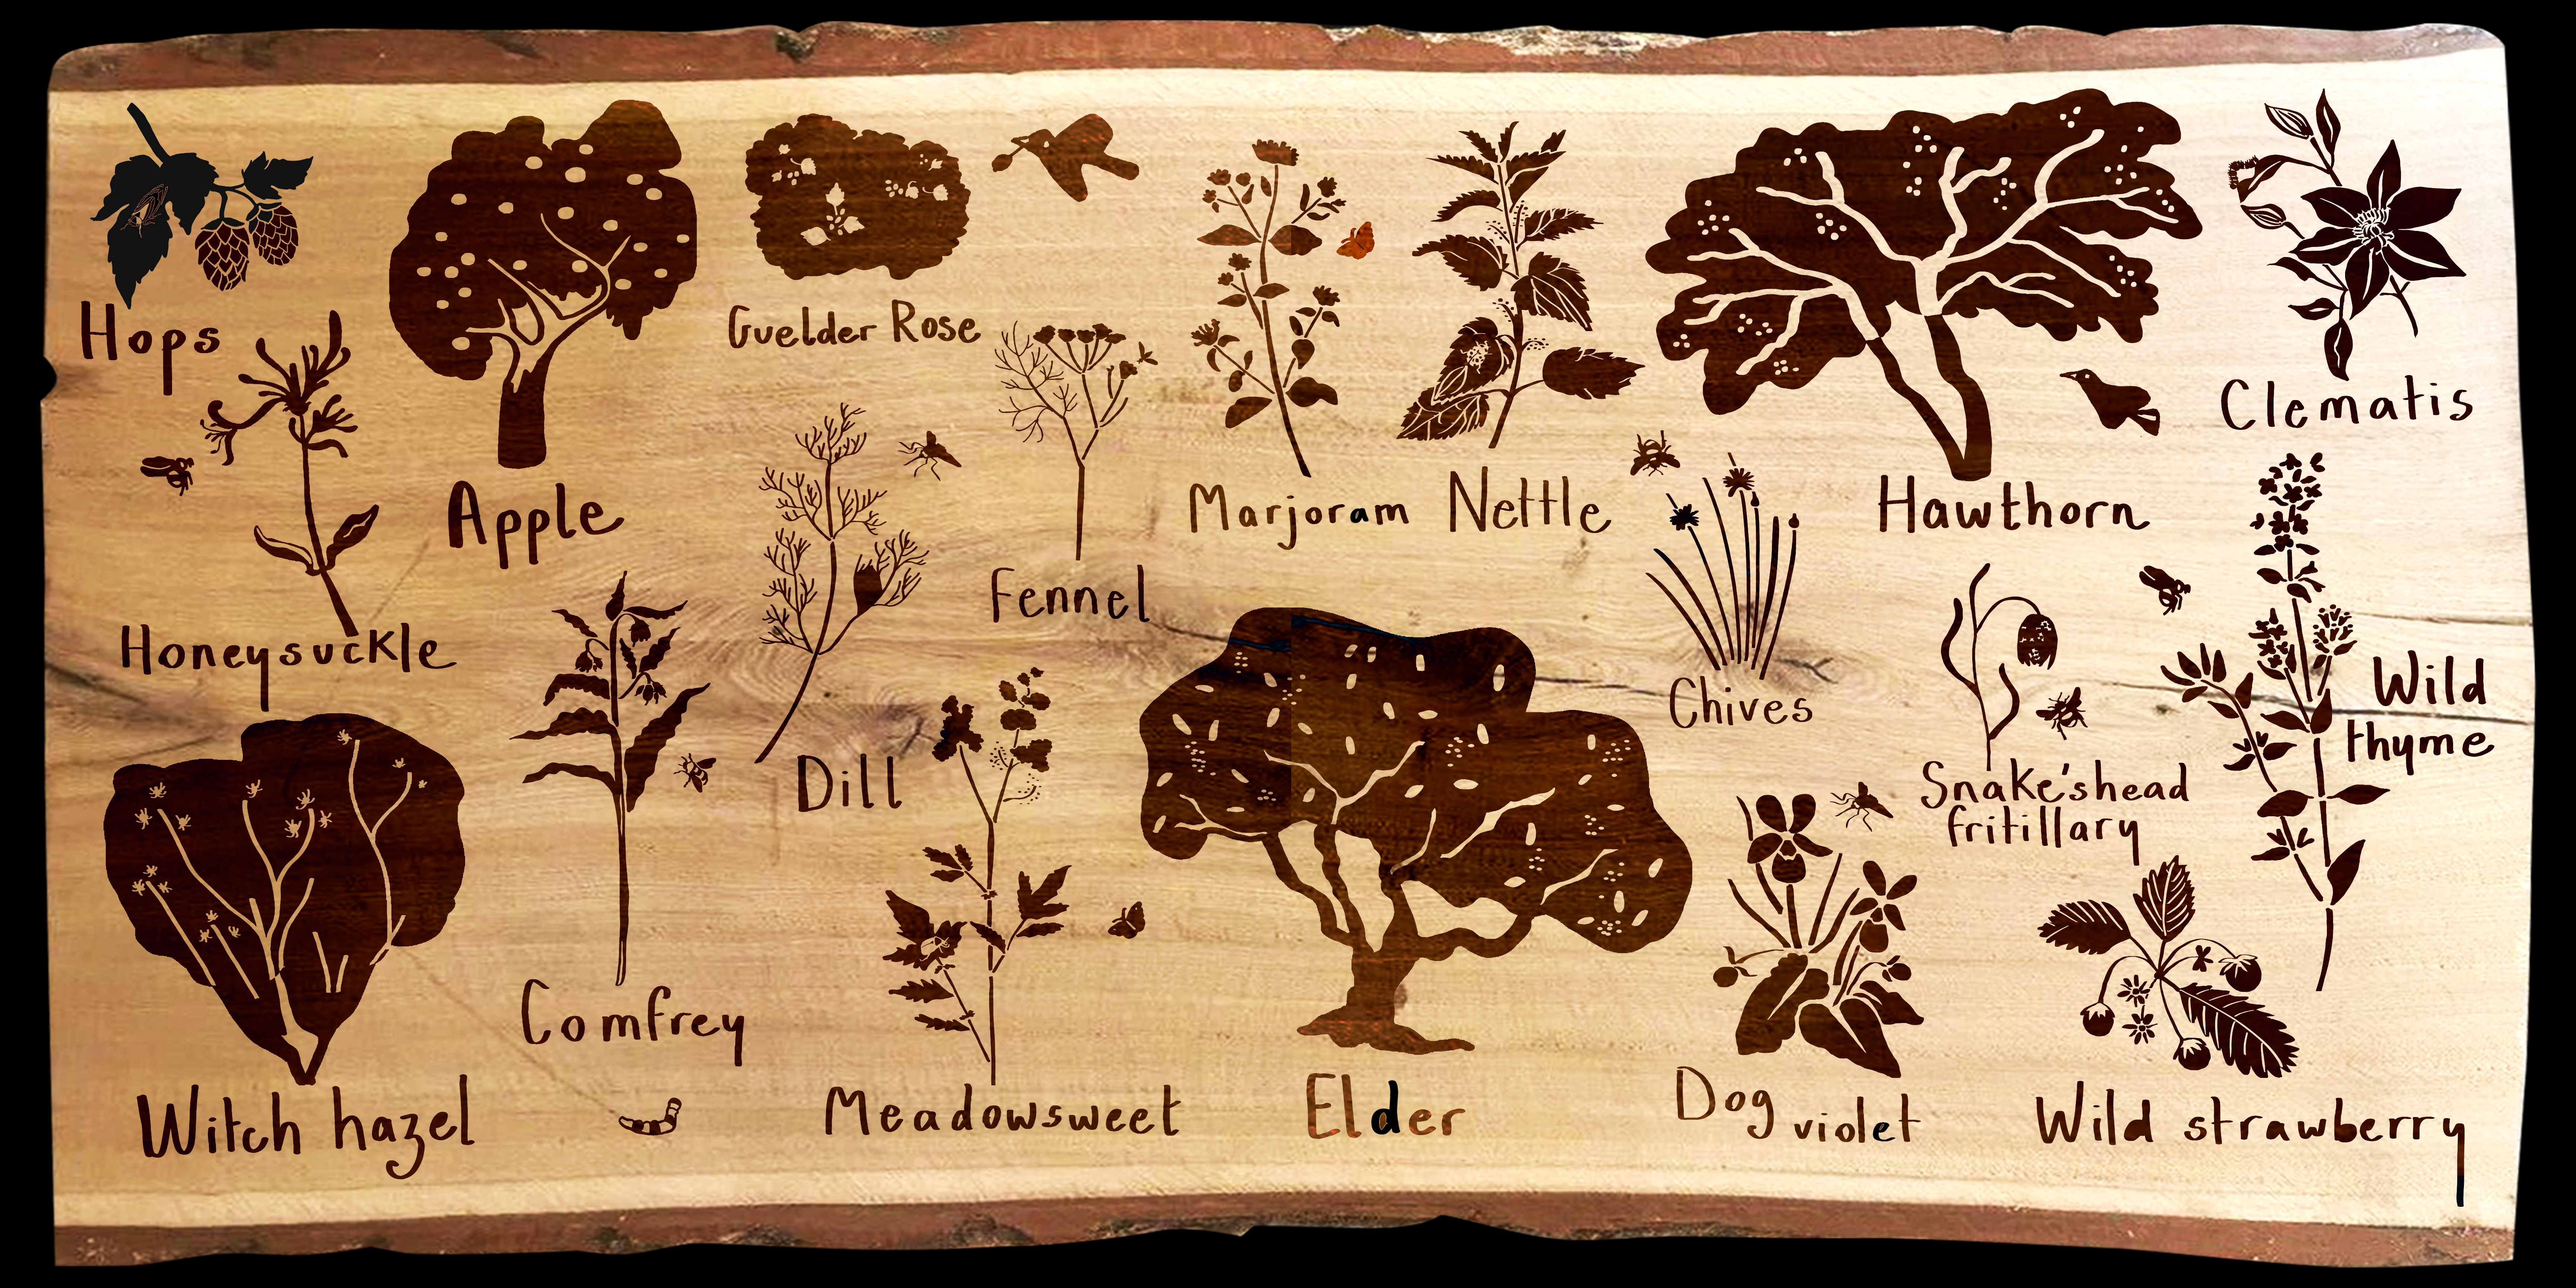 Hops
Guelder Rose
Apple
Marjoram
Nettle
Hawthorn
Clematis
Honeysuckle
Fennel
Chives
Wild
thyme
Dill
Snake'shead
fritillary
Comfrey
Witch hazel
Meadowsweet
Elder
Dog
violet
Wild strawberry